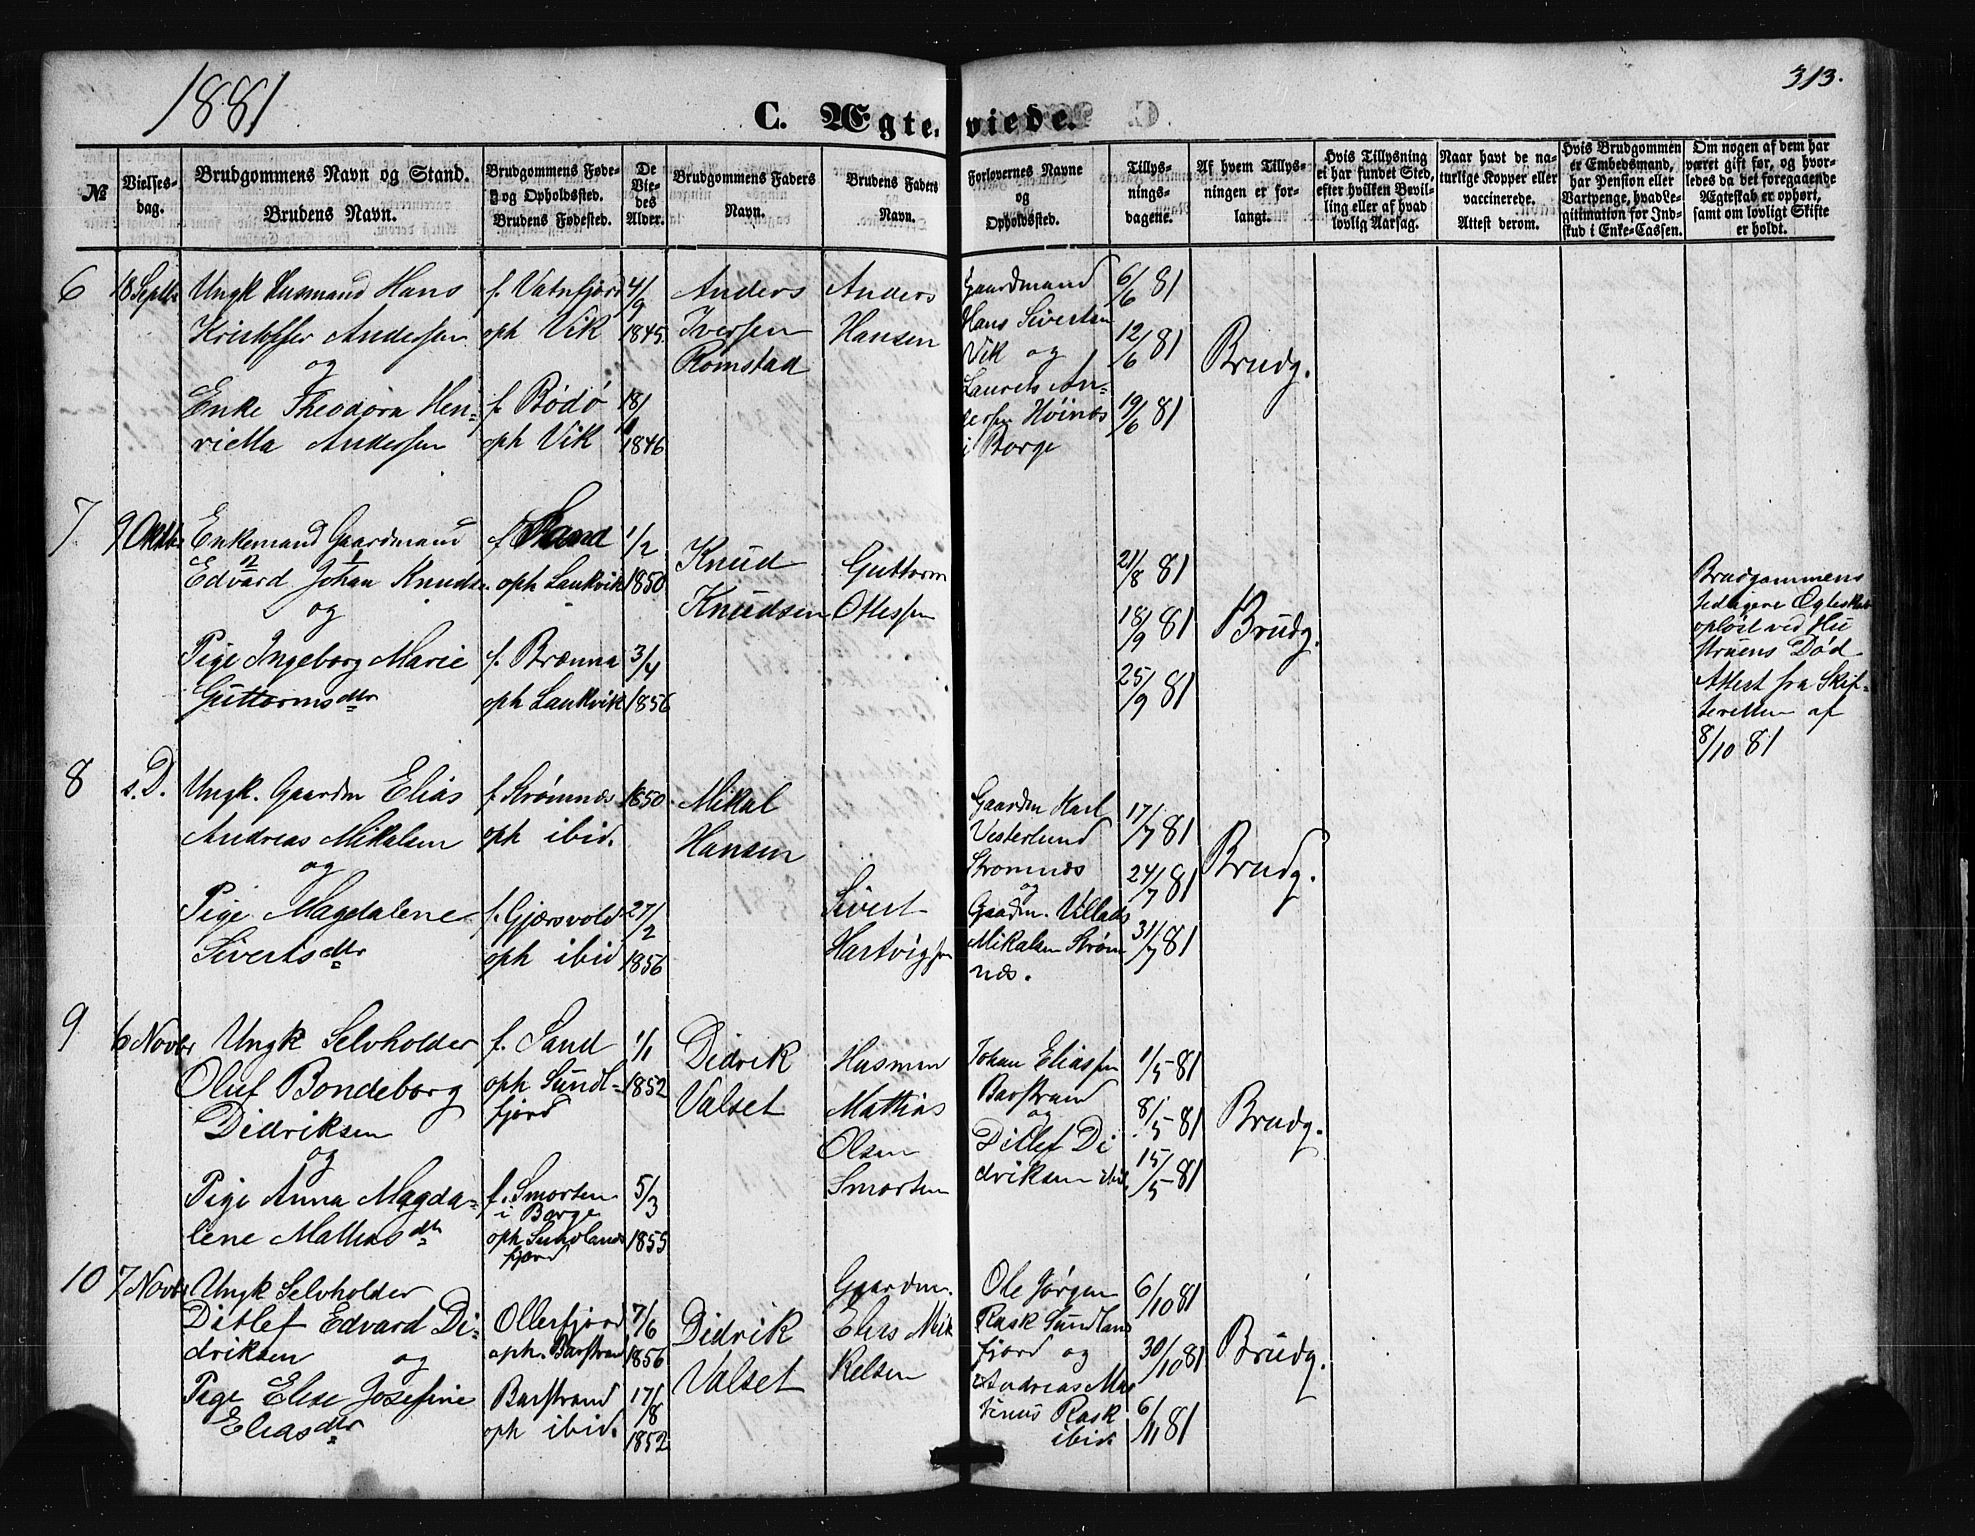 1881
313.
C. Ægteviede.
№
Vielsesdag.
Brudgommens Navn og Stand.
Brudens Navn.
Brudgommens Føde- og Opholdssted.
Brudens Fødested.
De Viedes Alder.
Brudgommens Faders Navn.
Brudens Faders Navn.
Forlovernes Navne og Opholdssted.
Tillysningsdagene.
Af hvem Tillysningen er forlangt.
Hvis Tillysning ei har fundet Sted, efter hvilken Bevilling eller af hvad lovlig Aarsag.
Naar havt de naturlige Kopper eller vaccinerede.
Attest derom.
Hvis Brudgommen er Embedsmand, har Pension eller Vartpenge, hvad Legitimation for Indskud i Enke-Cassen.
Om nogen af dem har været gift før, og hvorledes da det foregaaende Ægteskab er ophørt, samt om lovligt Skifte er holdt.
6
18 Septbr
Ungk Husmand Hans
Kristoffer Anderssen
og
Enke Theodora Hen-
rietta Anderssen
f. Vatnfjord
oph Vik
f. Bodø
oph Vik
4/9
1845.
18/
1846
Anders
Iversen
Romstad
Anders
Hansen
Gaardmand
Hans Sivertsen
Vik og
Laurets An-
derssen Høinæs
i Borge
6/6 81
12/6 81
19/6 81
Brudg.
7
9 Oktbr
Enkemand Gaardmand
2 1
Edvard Johan Knudsen
og
Pige Ingeborg Marie
Guttormsdtr
f. Sand
oph Laukvik
f. Brænna
oph Laukvik
1/2
1850
3/4
1856
Knud
Knudsen
Guttorm
Ottessen
21/8 81
18/9 81
25/9 81
Brudg.
Brudgommens
tidligere Ægteskab
opløst ved Hu
struens Død
Attest fra Skif-
teretten af
8/10 81
8
s. D.
Ungk. Gaardm Elias
Andreas Mikalsen
og
Pige Magdalene
Sivertsdtr
f. Strømnæs
oph ibid.
f. Gjærsvold
oph ibid
1850.
27/2
1856
Mikal
Hansen
Sivert
Hartvigsen
Gaardm Karl
Vesterlund
Stromnæs
og
Gaadm. Villads
Mikalsen Strøm
næs.
17/7 81
24/7 81
31/7 81
Brudg.
9
6 Novbr
Ungk Selvholder
Oluf Bondeborg
Didriksen
og
Pige Anna Magda-
lene Mathisdtr
f. Sand
oph Sundl-
fjord
f. Smorten
i Borge
oph Sundlands
fjord
1/1
1852
5/3
1855
Didrik
Valset
Husmn
Mathias
Olsen
Smorten
Johan Eliassen
Barstrand
og
Ditlef Di
driksen ibid.
1/5 81
8/5 81
15/5 81
Brudg.
10
7 Novbr
Ungk Selvholder
Ditlef Edvard Di-
driksen og
Pige Elise Josefine
Eliasdtr
Ollerfjord
oph. Barstrand
Barstrand
oph ibid.
7/6
1856
17/8
1852
Didrik
Valset
Gaardm.
Elias Mik
kelsen
Ole Jørgen
Rask Sundlans
fjord og
Andreas Mar
tinus Rask
ibid.
6/10 81
30/10 81
6/11 81
Brudg.